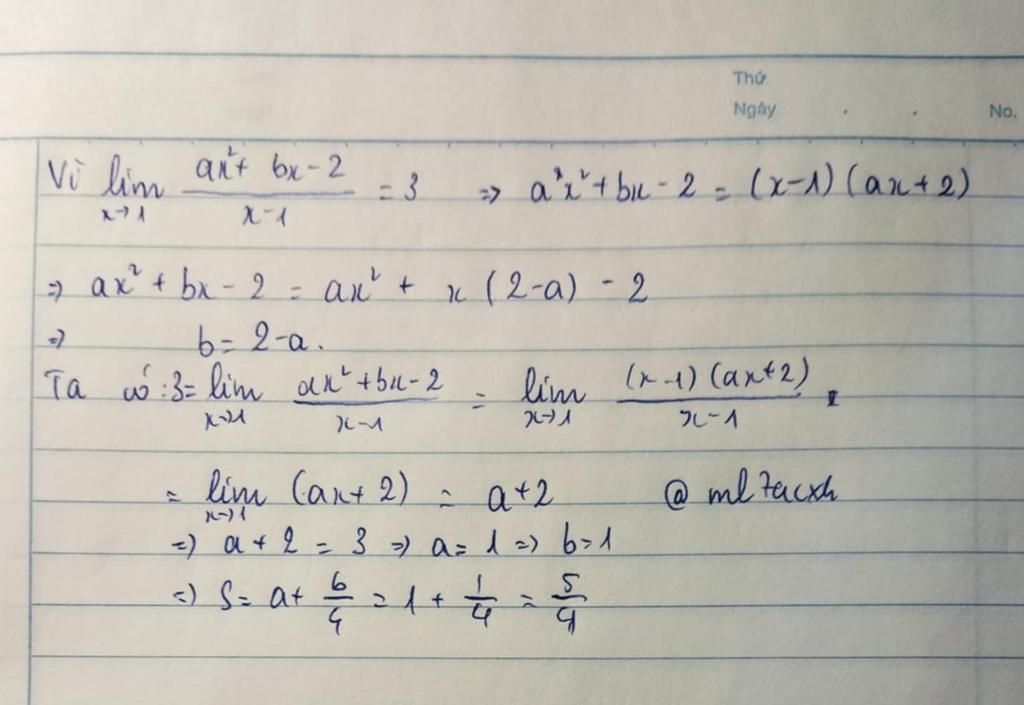 Thứ
Ngày . . No.
Vì lim_{x→1} \frac{ax²+ bx-2}{x-1} = 3 => a²x²+bx-2 = (x-1)(ax+2)
=> ax² + bx - 2 = ax² + x (2-a) - 2
=> b= 2-a.
Ta có: 3= lim_{x→1} \frac{ax²+bx-2}{x-1} = lim_{x→1} \frac{(x-1)(ax+2)}{x-1}
= lim_{x→1} (ax+2) = a+2 @ml7acxh
=> a+2 = 3 => a= 1 => b=1
=> S= a+ \frac{b}{4} = 1 + \frac{1}{4} = \frac{5}{4}